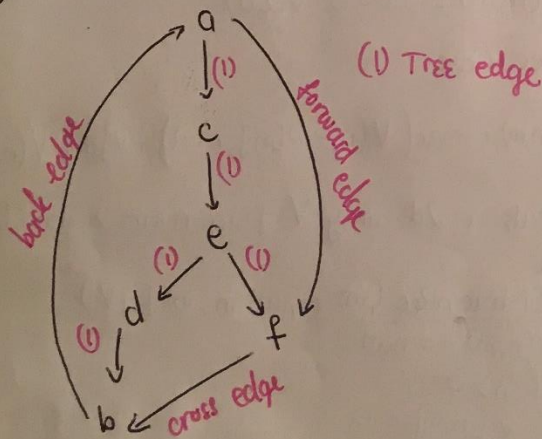 a
(1)
(1) Tree edge
c
(1)
forward edge
back edge
e
(1)
(1)
d
f
(1)
b
cross edge